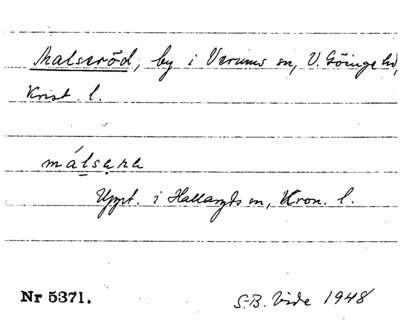 Malseröd, by i Verums sn, V. Göinge hd,
Krist. l.
målsara
Uppt. i Hallaryds sn, Kron. l.
Nr 5371.
S-B. Vide 1948